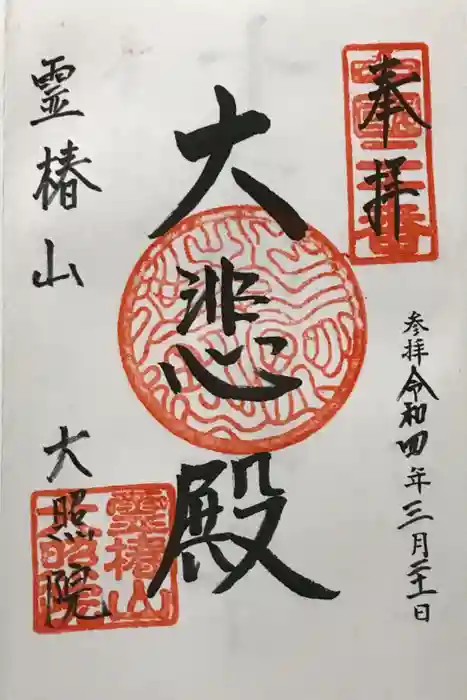 奉拝
参拝 令和四年三月二十一日
大悲殿
霊椿山
大照院
霊椿山